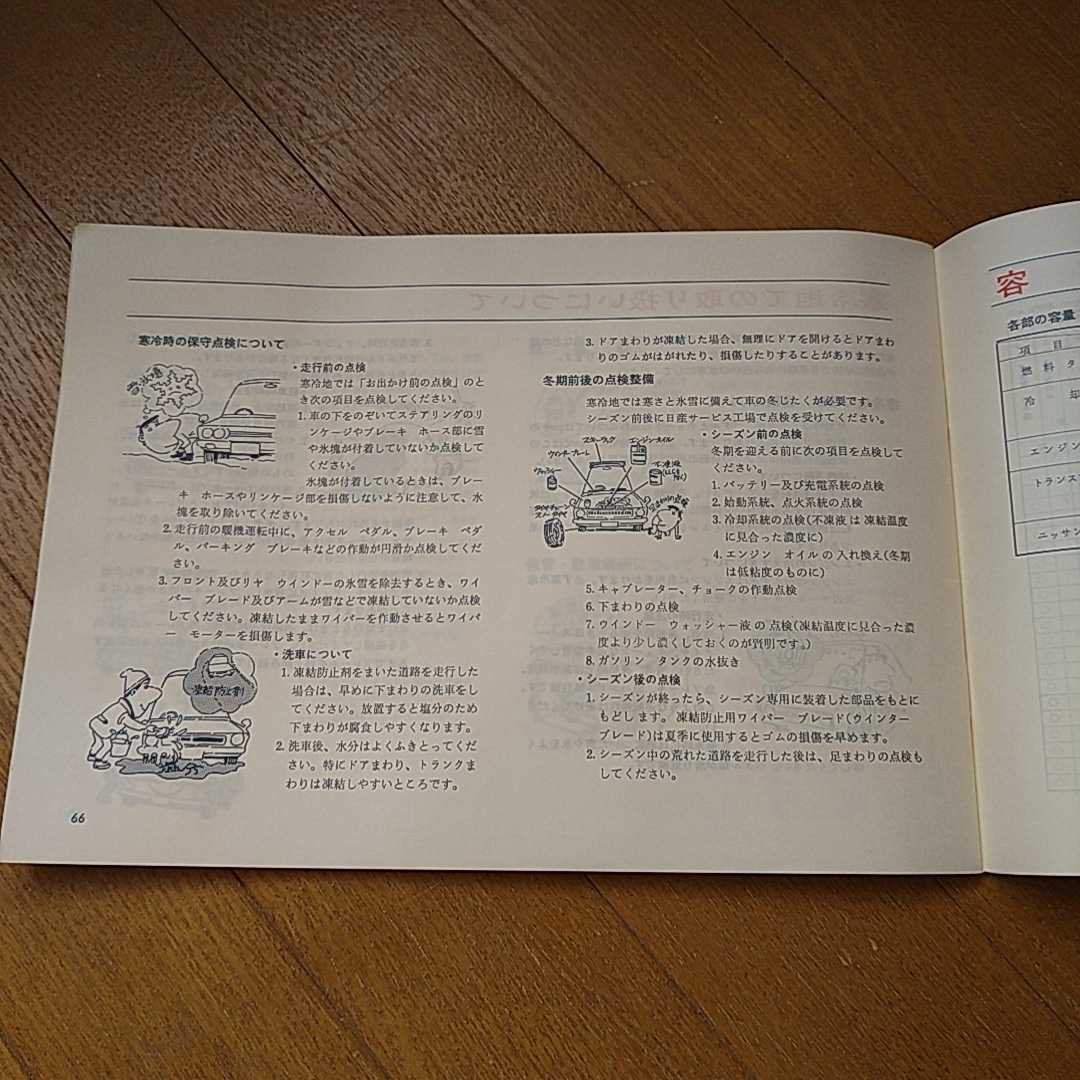 寒冷時の保守点検について
・走行前の点検
寒冷地では「お出かけ前の点検」のと
き次の項目を点検してください。
1. 車の下をのぞいてステアリングのリ
ンケージやブレーキ ホース部に雪
や氷塊が付着していないか点検して
ください。
氷塊が付着しているときは、ブレー
キ ホースやリンケージ部を損傷しないように注意して、氷
塊を取り除いてください。
2. 走行前の暖機運転中に、アクセル ペダル、ブレーキ ペダ
ル、パーキング ブレーキなどの作動が円滑か点検してくだ
さい。
3. フロント及びリヤ ウインドーの氷雪を除去するとき、ワイ
パー ブレード及びアームが雪などで凍結していないか点検
してください。凍結したままワイパーを作動させるとワイパ
ー モーターを損傷します。
・洗車について
凍結防止剤
1. 凍結防止剤をまいた道路を走行した
場合は、早めに下まわりの洗車をし
てください。放置すると塩分のため
下まわりが腐食しやすくなります。
2. 洗車後、水分はよくふきとってくだ
さい。特にドアまわり、トランクま
わりは凍結しやすいところです。
66
3. ドアまわりが凍結した場合、無理にドアを開けるとドアまわ
りのゴムがはがれたり、損傷したりすることがあります。
冬期前後の点検整備
寒冷地では寒さと氷雪に備えて車の冬じたくが必要です。
シーズン前後に日産サービス工場で点検を受けてください。
・シーズン前の点検
冬期を迎える前に次の項目を点検して
ください。
エンジンオイル
不凍液
1. バッテリー及び充電系統の点検
2. 始動系統、点火系統の点検
3. 冷却系統の点検(不凍液は凍結温度
に見合った濃度に)
4. エンジン オイルの入れ換え(冬期
は低粘度のものに)
5. キャブレーター、チョークの作動点検
6. 下まわりの点検
7. ウインドー ウォッシャー液の点検(凍結温度に見合った濃
度より少し濃くしておくのが賢明です。)
8. ガソリン タンクの水抜き
・シーズン後の点検
1. シーズンが終ったら、シーズン専用に装着した部品をもとに
もどします。凍結防止用ワイパー ブレード(ウインター
ブレード)は夏季に使用するとゴムの損傷を早めます。
2. シーズン中の荒れた道路を走行した後は、足まわりの点検も
してください。
容
各部の容量
項 目
燃料タ
冷 却
エンジン
トランス
ニッサン